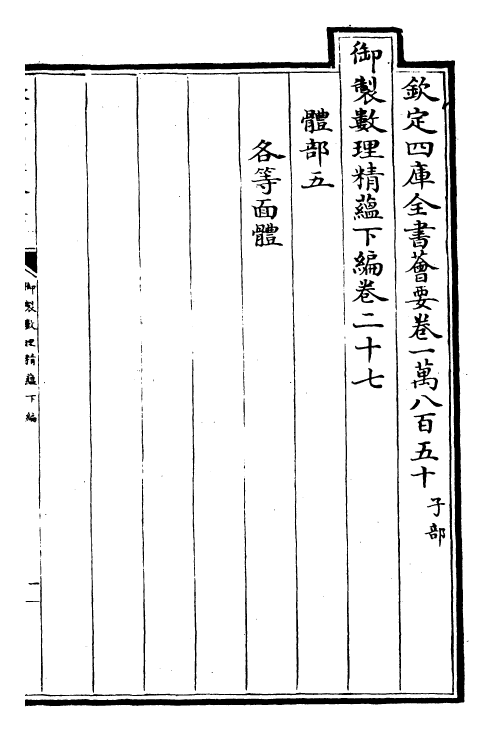 欽定四庫全書薈要卷一萬八百五十 子部
御製數理精蘊下編卷二十七
體部五
各等面體
御製數理精蘊下編
一